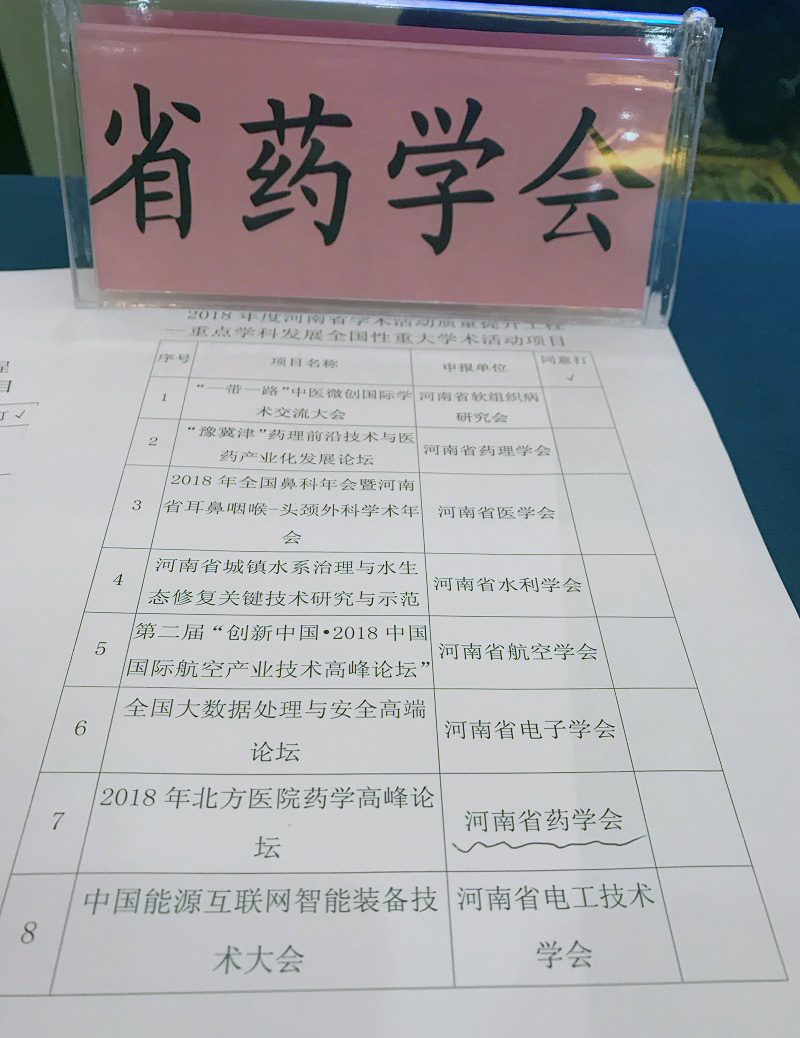 省药学会
2018年度河南省学术活动质量提升工程
—重点学科发展全国性重大学术活动项目
序号 项目名称 申报单位 同意打
√
1 “一带一路”中医微创国际学 河南省软组织病
术交流大会 研究会
2 “豫冀津”药理前沿技术与医 河南省药理学会
药产业化发展论坛
3 2018年全国鼻科年会暨河南 河南省医学会
省耳鼻咽喉-头颈外科学术年
会
4 河南省城镇水系治理与水生 河南省水利学会
态修复关键技术研究与示范
5 第二届“创新中国•2018中国 河南省航空学会
国际航空产业技术高峰论坛”
6 全国大数据处理与安全高端 河南省电子学会
论坛
7 2018年北方医院药学高峰论 河南省药学会
坛
8 中国能源互联网智能装备技 河南省电工技术
术大会 学会
目
打√